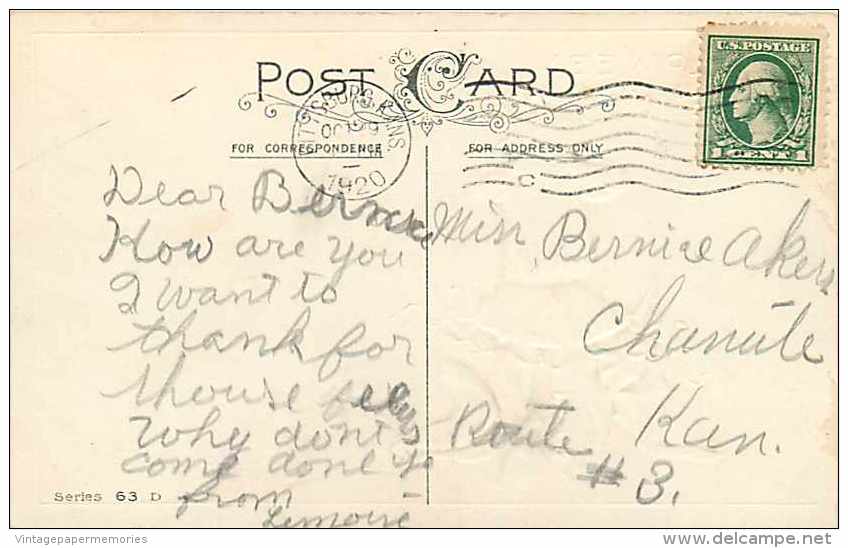 POST CARD
U.S. POSTAGE
1 CENT 1
PITTSBURG, KANS.
1920
FOR CORRESPONDENCE
FOR ADDRESS ONLY
Dear Bernice
How are you
I want to
thank for
thouse
Why dont
come done
from
Miss Bernice Akers
Chanute
Kan.
Route
#3.
Series 63 D
Vintagepapermemories
delcampe.net